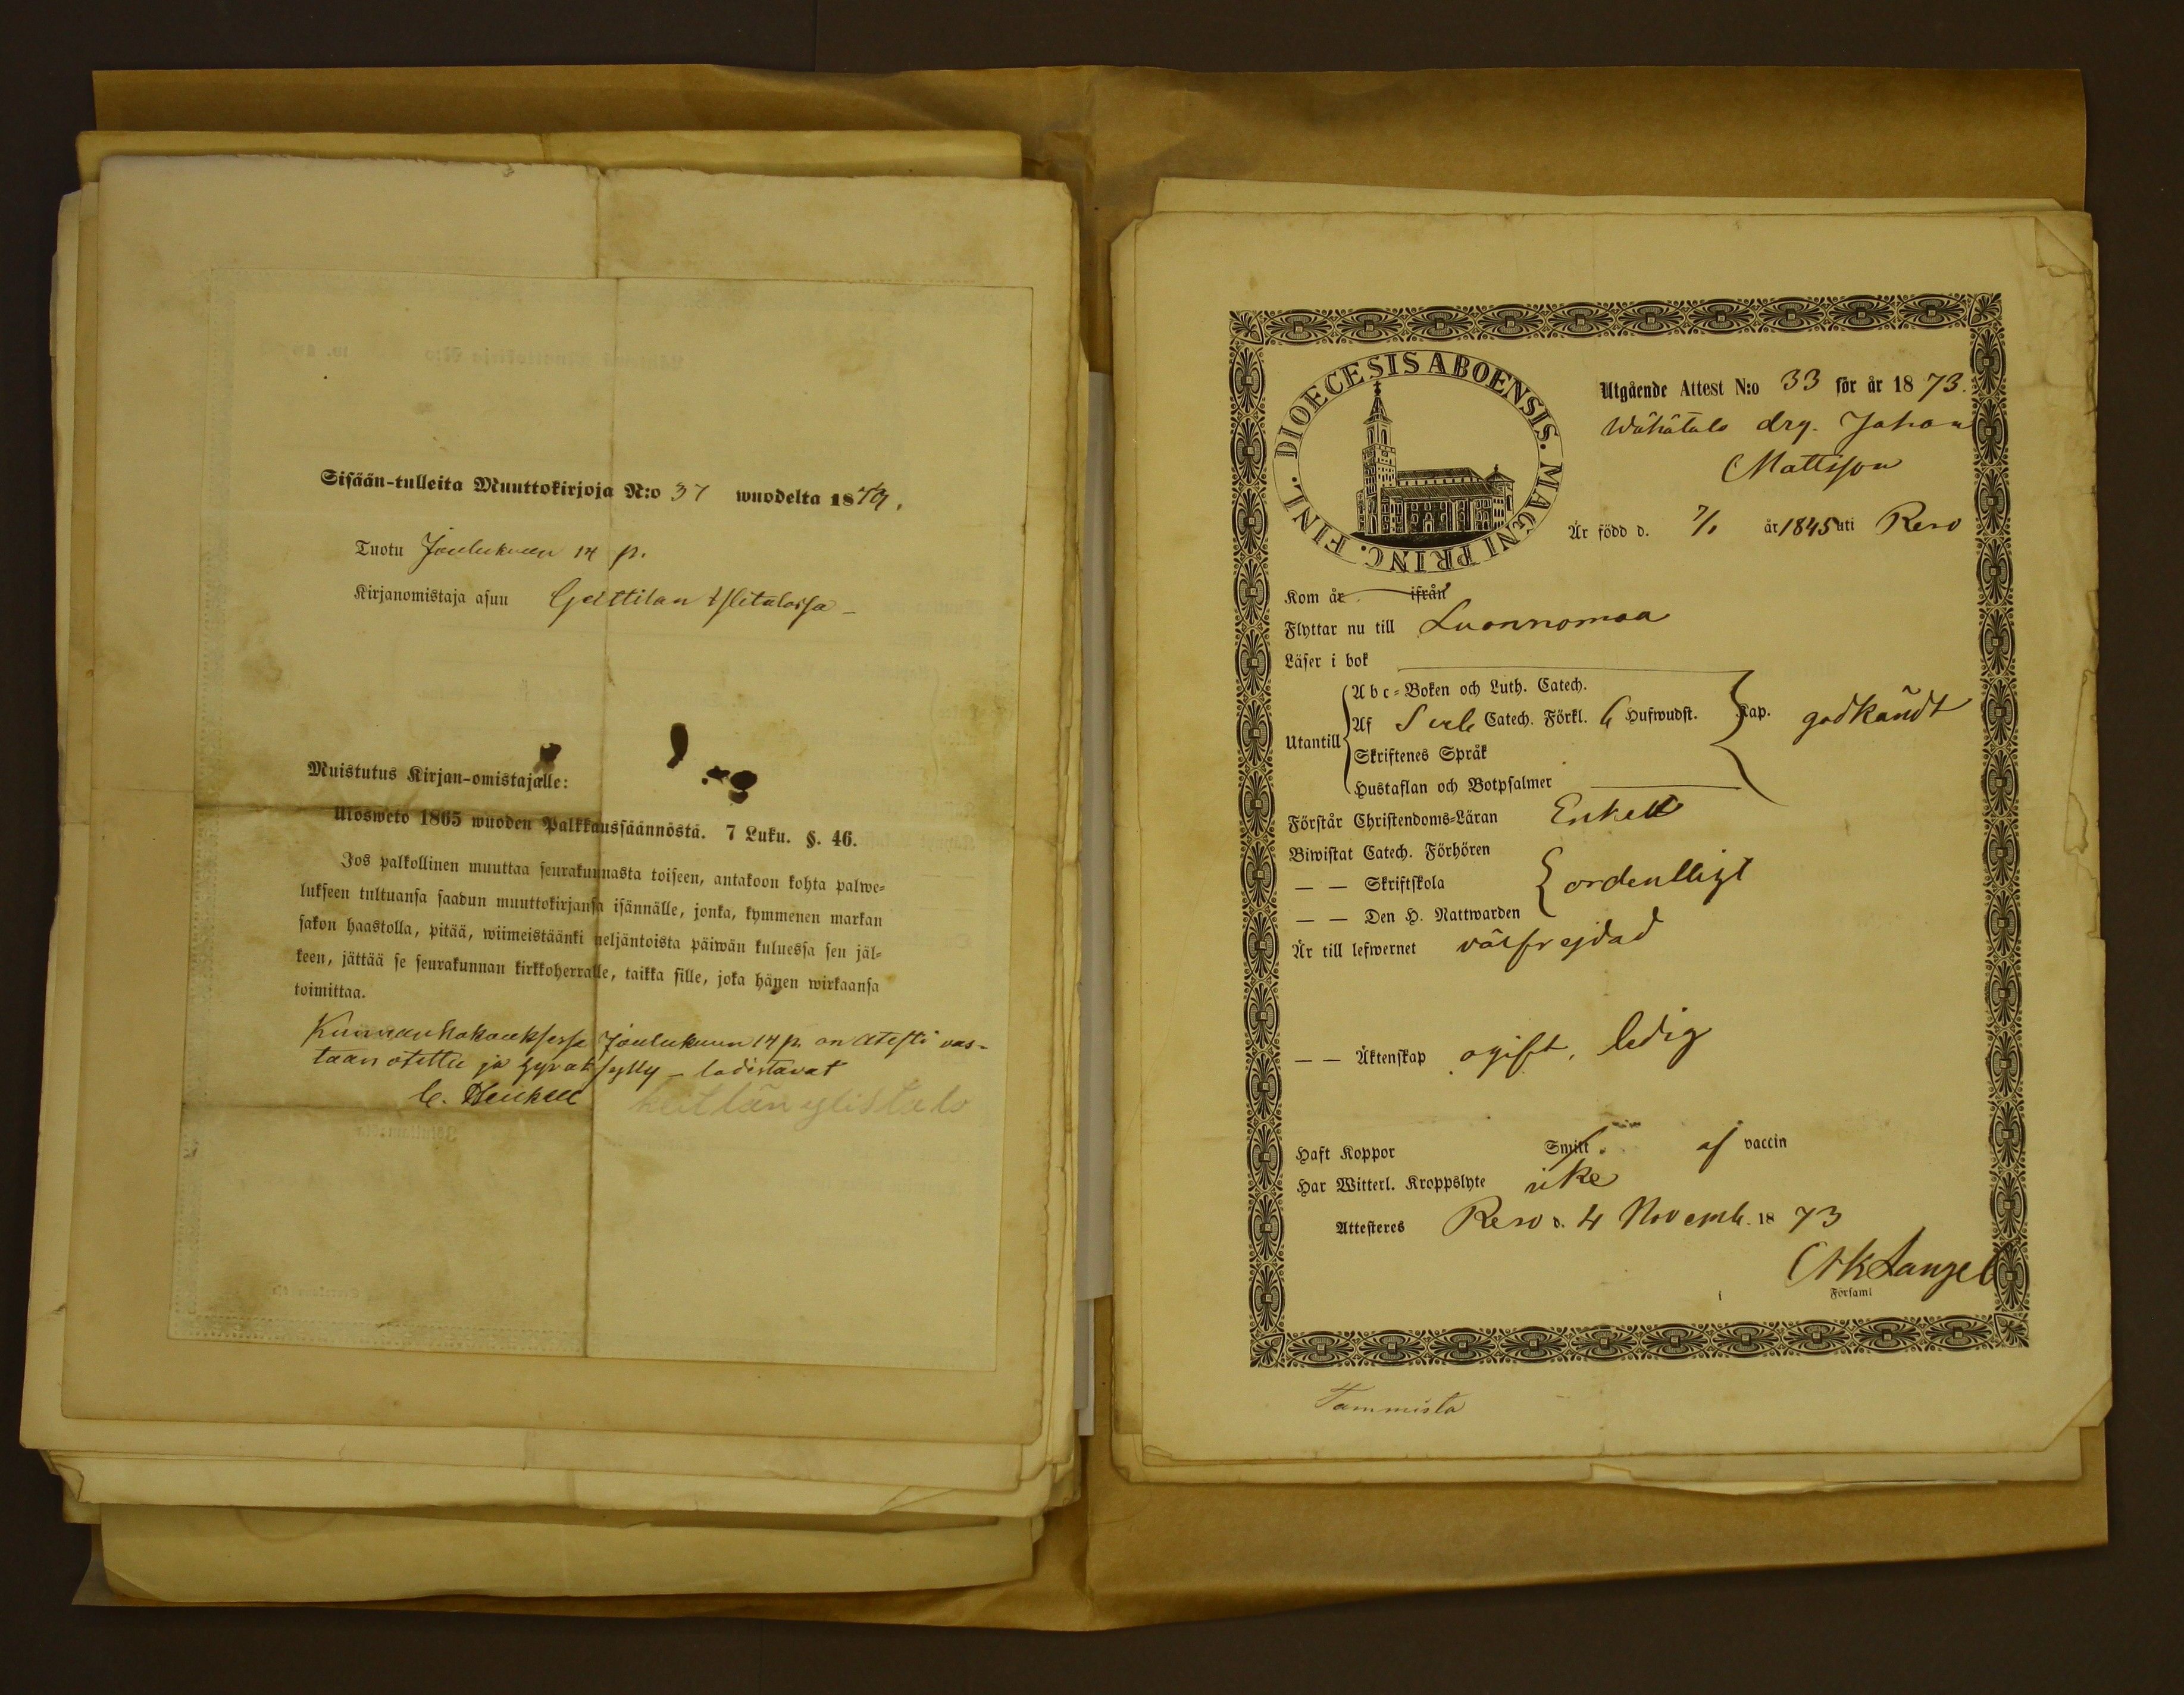 Sisään-tulleita Muuttokirjoja N:o 37 wuodelta 1873.
Tuotu Joulukuun 14 p.
Kirjanomistaja asuu Geittilan Ylitalossa
Muistutus Kirjan-omistajalle:
Ulosweto 1865 wuoden Palkkaussäännöstä. 7 Luku. §. 46.
Jos palkollinen muuttaa seurakunnasta toiseen, antakoon kohta palwe-
lukseen tultuansa saadun muuttokirjansa isännälle, jonka, kymmenen markan
sakon haastolla, pitää, wiimeistäänki neljäntoista päiwän kuluessa sen jäl-
keen, jättää se seurakunnan kirkkoherralle, taikka sille, joka hänen wirkaansa
toimittaa.
Kunnankokouksessa Joulukuun 14 p. on atesti vas-
taan otettu ja hyväksytty todistavat
C. Heickell
keitlän ylistalo
DIOECESIS ABOENSIS. MAGNI PRINC. FINL.
Utgående Attest N:o 33 för år 1873.
Wähätalo drg. Johan
Mattsson
Är född d. 7/1 år 1845 uti Reso
Kom år ifrån
Flyttar nu till Luonnomaa
Läser i bok
Abc-Boken och Luth. Catech.
Utantill Af Sveb Catech. Förkl. 6 Hufwudst. Kap. godkändt
Skriftenes Språk
Hustaflan och Botpsalmer
Förstår Christendoms-Läran Enkelt
Biwistat Catech. Förhören
— — Skriftskola ordentligt
— — Den H. Nattwarden
Är till lefwernet välfrejdad
— — Äktenskap ogift, ledig
Haft Koppor Smitt af vaccin
Har Witterl. Kroppslyte icke
Attesteres Reso d. 4 Novemb. 1873
i Församl
Tammista